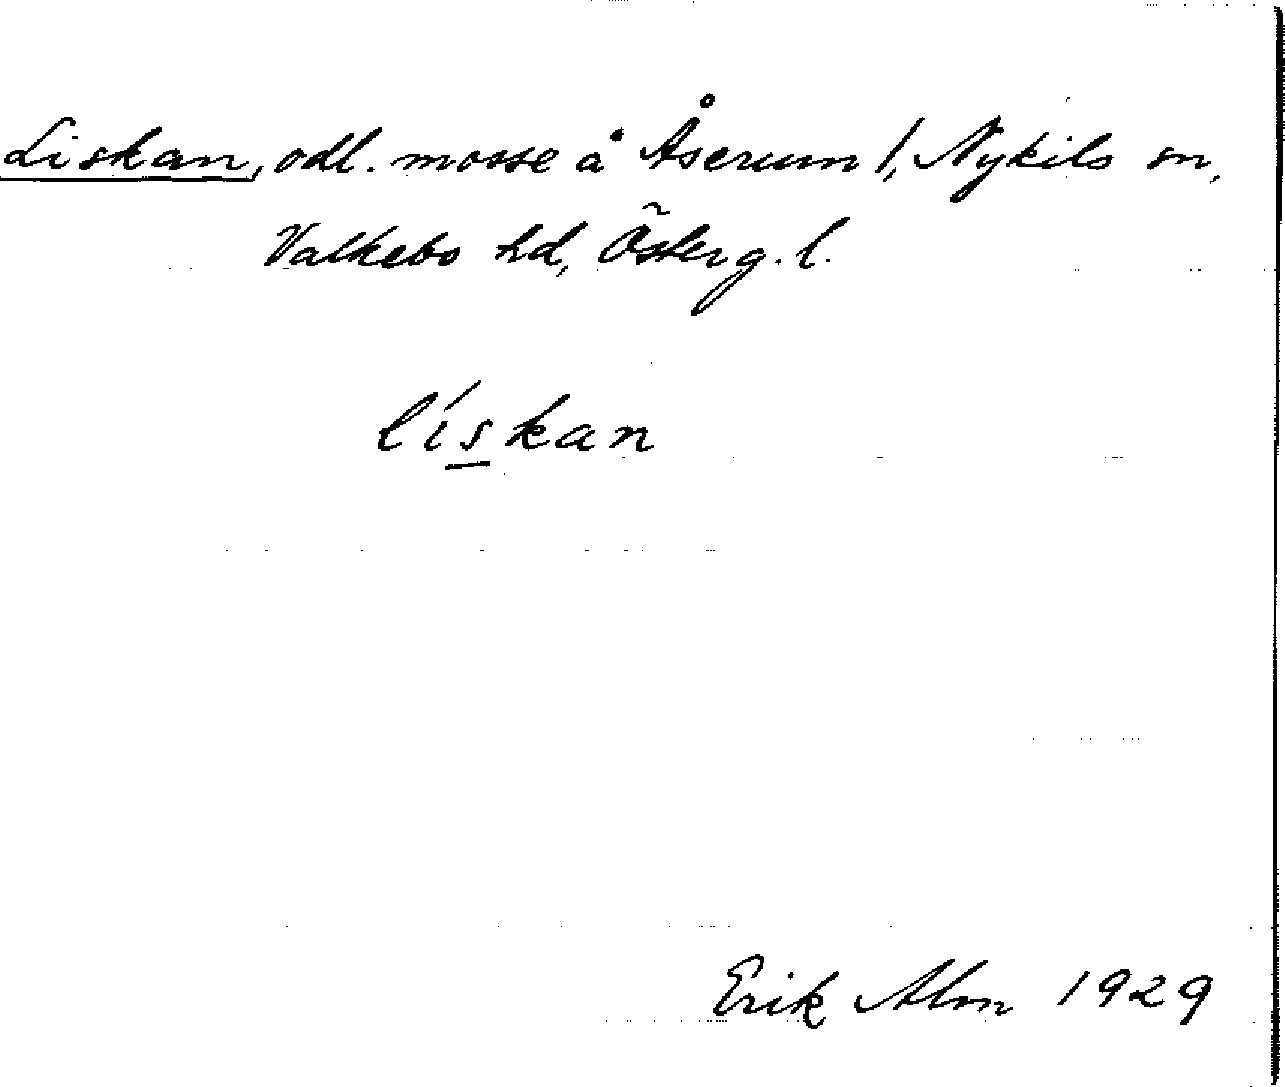 Liskan, odl. mosse å Åserum 1, Nykils sn,
Valkebo hd, Österg. l.
lískan
Erik Alm 1929